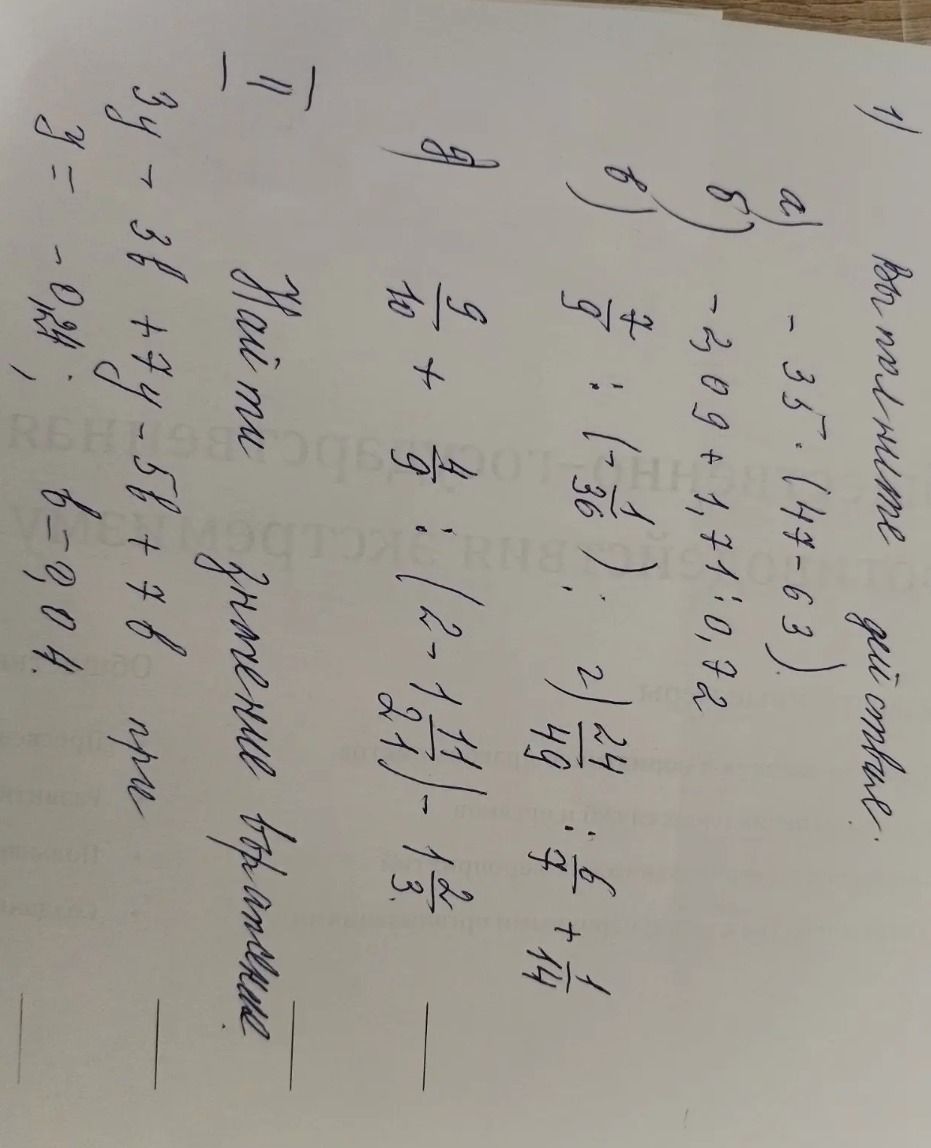 1) Выполните действие.
а) - 35 · (47 - 63)
б) - 2,09 + 1,71 : 0,72
в) 7/9 : (- 1/36); г) 24/49 : 6/7 + 1/14
д) 9/10 + 4/9 : (2 - 1 11/21) - 1 2/3.
II Найти значение выражение
3y - 3b + 7y - 5b + 7b при
y = - 0,24; b = 0,04